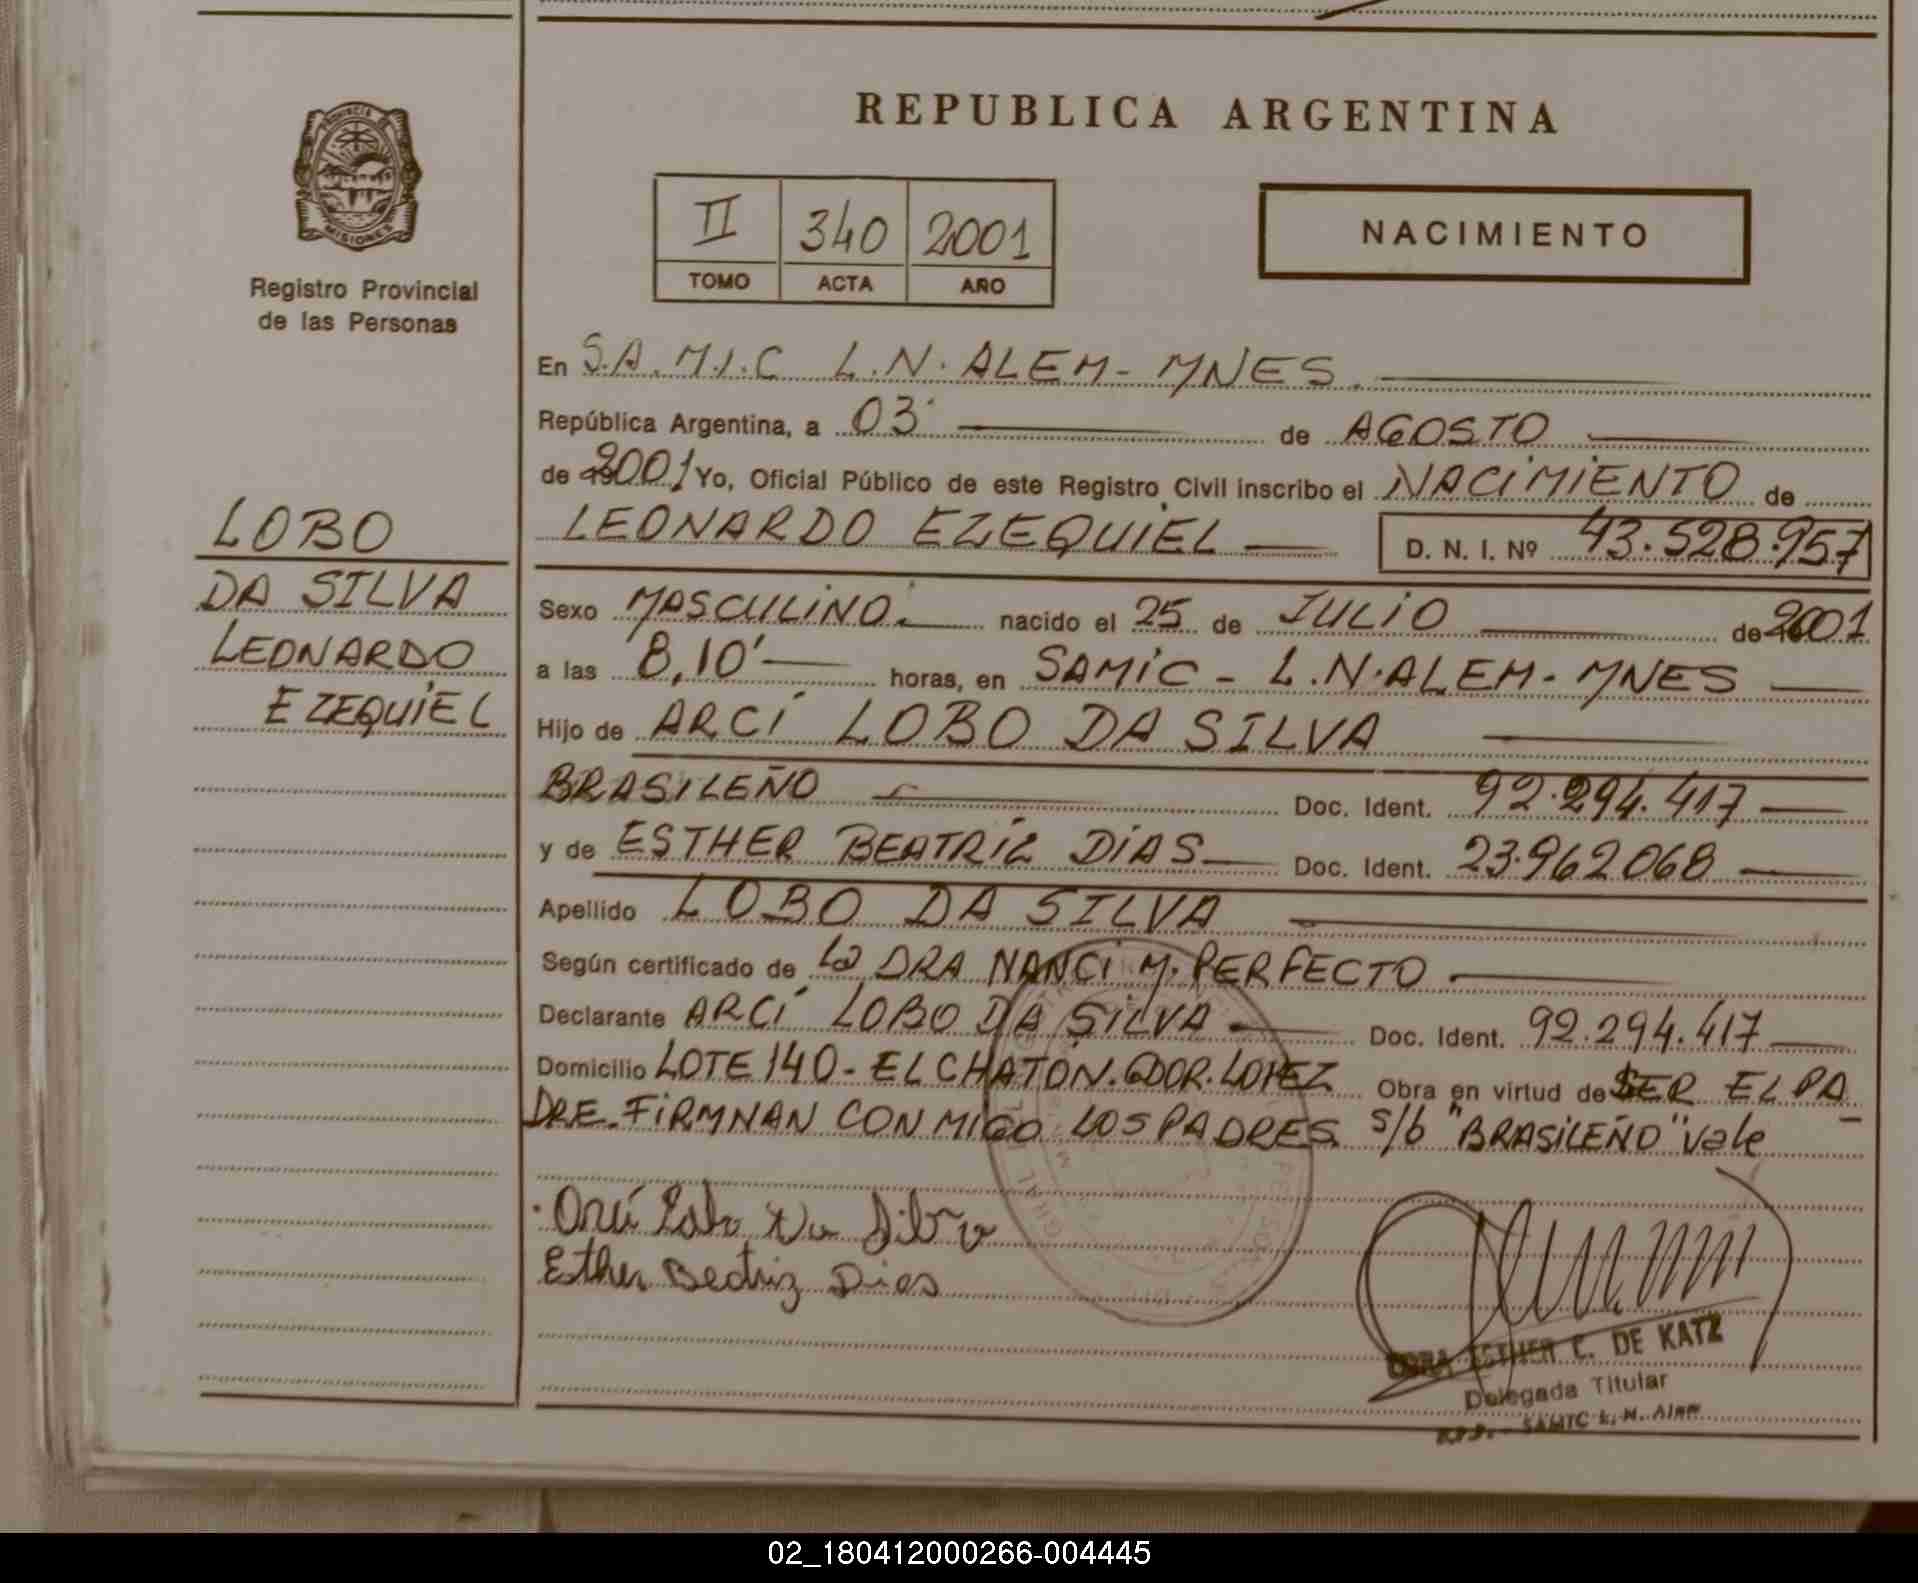 PROVINCIA DE
MISIONES
Registro Provincial
de las Personas
LOBO
DA SILVA
LEONARDO
EZEQUIEL
REPUBLICA ARGENTINA
II 340 2001
TOMO ACTA AÑO
NACIMIENTO
En S.A.M.I.C L.N. ALEM - MNES.
República Argentina, a 03 de AGOSTO
de 2001 Yo, Oficial Público de este Registro Civil inscribo el NACIMIENTO de
LEONARDO EZEQUIEL D. N. I. Nº 43.528.957
Sexo MASCULINO. nacido el 25 de JULIO de 2001
a las 8,10' horas, en SAMIC - L.N. ALEM - MNES
Hijo de ARCÍ LOBO DA SILVA
BRASILEÑO Doc. Ident. 92.294.417
y de ESTHER BEATRIZ DIAS Doc. Ident. 23.962068
Apellido LOBO DA SILVA
Según certificado de La DRA NANCI M. PERFECTO
Declarante ARCÍ LOBO DA SILVA Doc. Ident. 92.294.417
Domicilio LOTE 140 - EL CHATON. GDOR. LOPEZ Obra en virtud de SER EL PA
DRE. FIRMNAN CONMIGO LOS PADRES s/b "BRASILEÑO" vale
Lobo Da Silva
Esther Beatriz Dias
ESTHER C. DE KATZ
Delegada Titular
SAMIC L. N. Alem
02_180412000266-004445